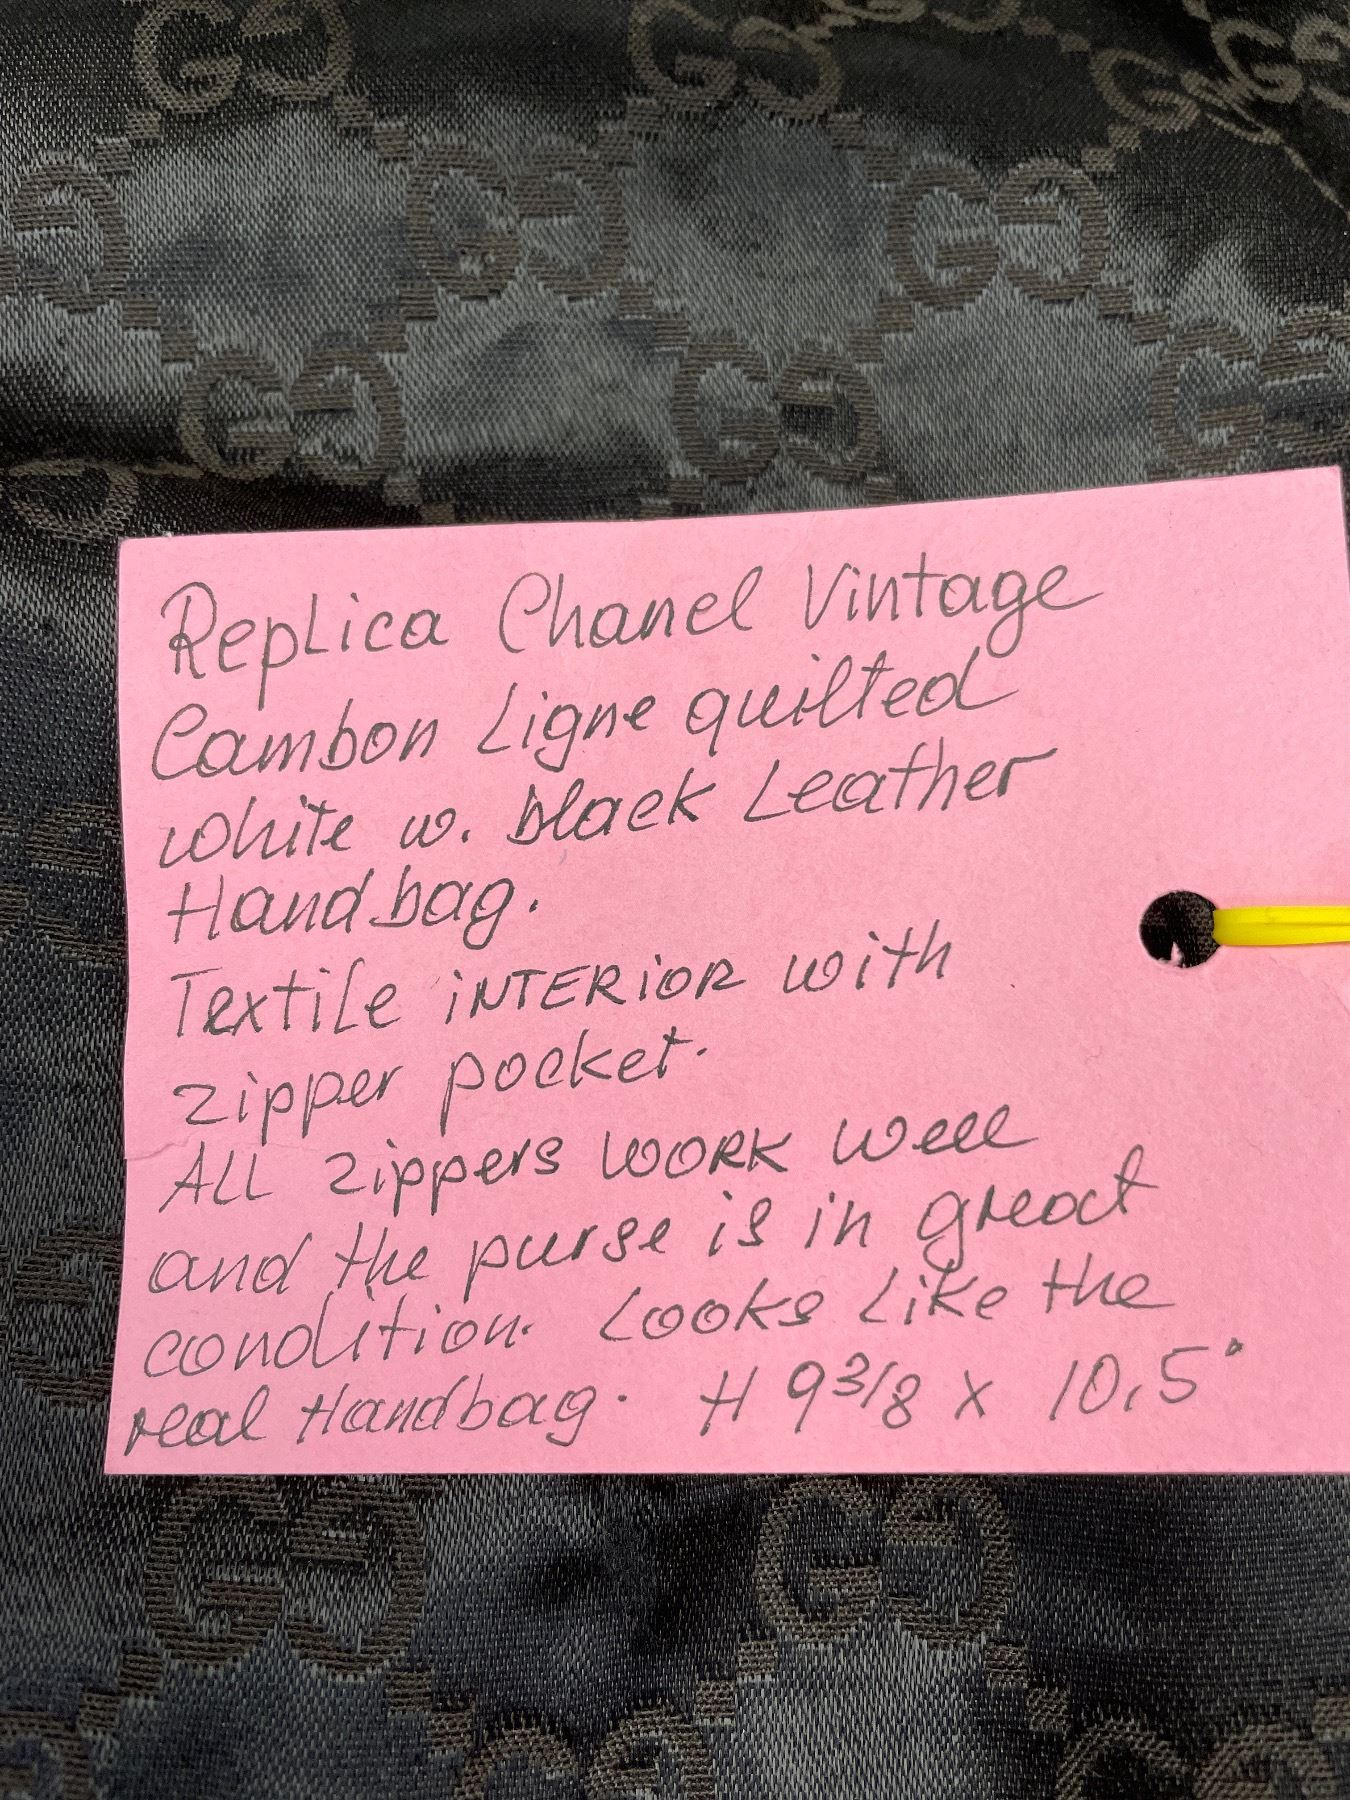 Replica Chanel Vintage
Cambon Ligne quilted
white w. black Leather
Handbag.
Textile iNTERiOR with
zipper pocket.
ALL zippers WORK well
and the purse is in great
condition. Looks Like the
real Handbag. H 9 3/8 x 10,5"